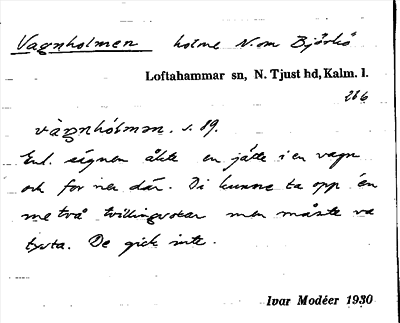 Vagnholmen holme N. om Björkö
Loftahammar sn, N. Tjust hd, Kalm. l.
266
vàgnhólmən. s. 89.
Enl. sägnen åkte en jätte i en vagn
och for ner där. Di kunne ta opp 'en
me två tvillingoxar men måste va
tysta. De gick inte.
Ivar Modéer 1930